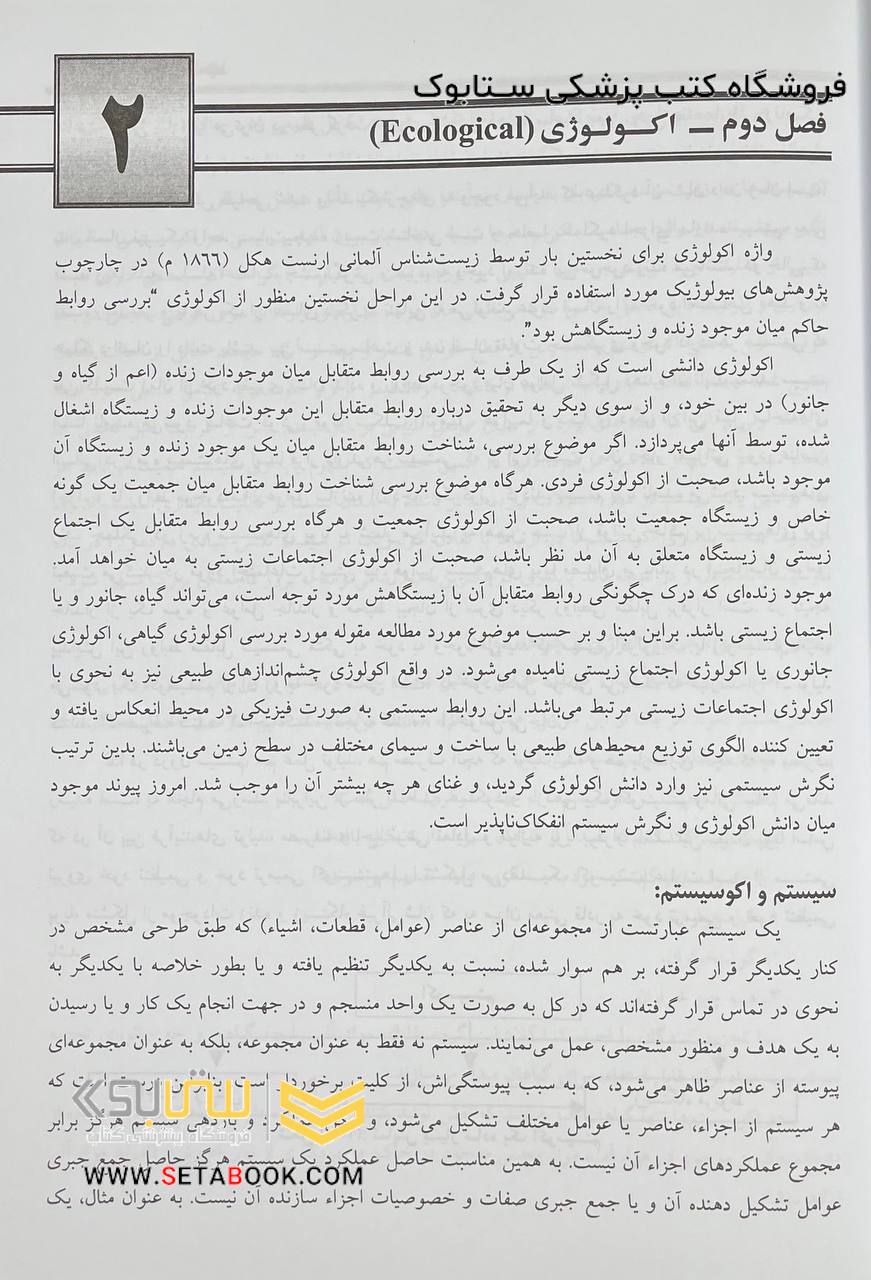 فروشگاه کتب پزشکی ستابوک
۲
فصل دوم – اکولوژی (Ecological)
واژه اکولوژی برای نخستین بار توسط زیست‌شناس آلمانی ارنست هکل (۱۸۶۶ م) در چارچوب
پژوهش‌های بیولوژیک مورد استفاده قرار گرفت. در این مراحل نخستین منظور از اکولوژی “بررسی روابط
حاکم میان موجود زنده و زیستگاهش بود”
اکولوژی دانشی است که از یک طرف به بررسی روابط متقابل میان موجودات زنده (اعم از گیاه و
جانور) در بین خود، و از سوی دیگر به تحقیق درباره روابط متقابل این موجودات زنده و زیستگاه اشغال
شده، توسط آنها می‌پردازد. اگر موضوع بررسی، شناخت روابط متقابل میان یک موجود زنده و زیستگاه آن
موجود باشد، صحبت از اکولوژی فردی. هرگاه موضوع بررسی شناخت روابط متقابل میان جمعیت یک گونه
خاص و زیستگاه جمعیت باشد، صحبت از اکولوژی جمعیت و هرگاه بررسی روابط متقابل یک اجتماع
زیستی و زیستگاه متعلق به آن مد نظر باشد، صحبت از اکولوژی اجتماعات زیستی به میان خواهد آمد.
موجود زنده‌ای که درک چگونگی روابط متقابل آن با زیستگاهش مورد توجه است، می‌تواند گیاه، جانور و یا
اجتماع زیستی باشد. براین مبنا و بر حسب موضوع مورد مطالعه مقوله مورد بررسی اکولوژی گیاهی، اکولوژی
جانوری یا اکولوژی اجتماع زیستی نامیده می‌شود. در واقع اکولوژی چشم‌اندازهای طبیعی نیز به نحوی با
اکولوژی اجتماعات زیستی مرتبط می‌باشد. این روابط سیستمی به صورت فیزیکی در محیط انعکاس یافته و
تعیین کننده الگوی توزیع محیط‌های طبیعی با ساخت و سیمای مختلف در سطح زمین می‌باشند. بدین ترتیب
نگرش سیستمی نیز وارد دانش اکولوژی گردید، و غنای هر چه بیشتر آن را موجب شد. امروز پیوند موجود
میان دانش اکولوژی و نگرش سیستم انفکاک‌ناپذیر است.
سیستم و اکوسیستم:
یک سیستم عبارتست از مجموعه‌ای از عناصر (عوامل، قطعات، اشیاء) که طبق طرحی مشخص در
کنار یکدیگر قرار گرفته، بر هم سوار شده، نسبت به یکدیگر تنظیم یافته و یا بطور خلاصه با یکدیگر به
نحوی در تماس قرار گرفته‌اند که در کل به صورت یک واحد منسجم و در جهت انجام یک کار و یا رسیدن
به یک هدف و منظور مشخصی، عمل می‌نمایند. سیستم نه فقط به عنوان مجموعه، بلکه به عنوان مجموعه‌ای
پیوسته از عناصر ظاهر می‌شود، که به سبب پیوستگی‌اش، از کلیت برخوردار است. بنابراین درست است که
هر سیستم از اجزاء، عناصر یا عوامل مختلف تشکیل می‌شود، و عملکرد و بازدهی سیستم هرگز برابر
مجموع عملکردهای اجزاء آن نیست. به همین مناسبت حاصل عملکرد یک سیستم هرگز حاصل جمع جبری
عوامل تشکیل دهنده آن و یا جمع جبری صفات و خصوصیات اجزاء سازنده آن نیست. به عنوان مثال، یک
ستابوک
فروشگاه اینترنتی کتاب
WWW.SETABOOK.COM